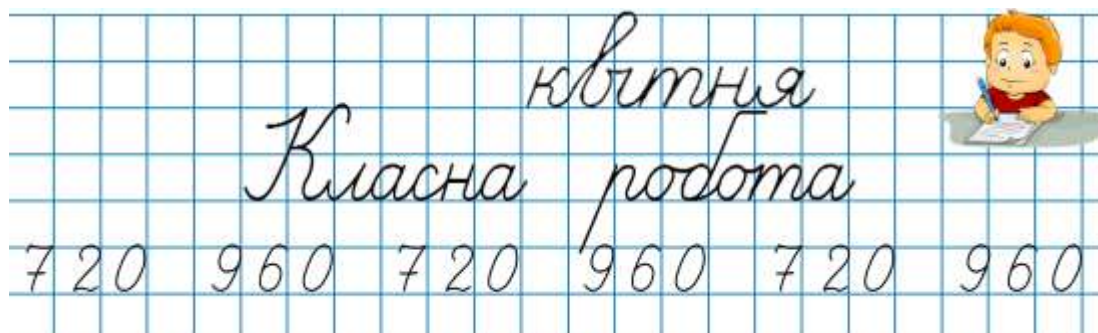 квітня
Класна робота
720 960 720 960 720 960